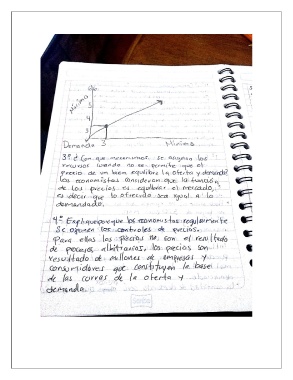 Maximo
5
4
3
Demanda 3 Minimo
3º ¿Con que mecanismos, se asignan los
recursos cuando no se permite que el
precio de un bien equilibre la oferta y demanda?
Los economistas consideran que la función
de los precios es equilibrar el mercado,
es decir que lo ofrecido sea igual a lo
demandado.
4º Explique porque los economistas regularmente
Se oponen los controles de precios.
Para ellos los precios no son el resultado
de procesos albitrarios, los precios son
resultado de millones de empresas y
consumidores que constituyen la base
de las curvas de la oferta y
demanda.